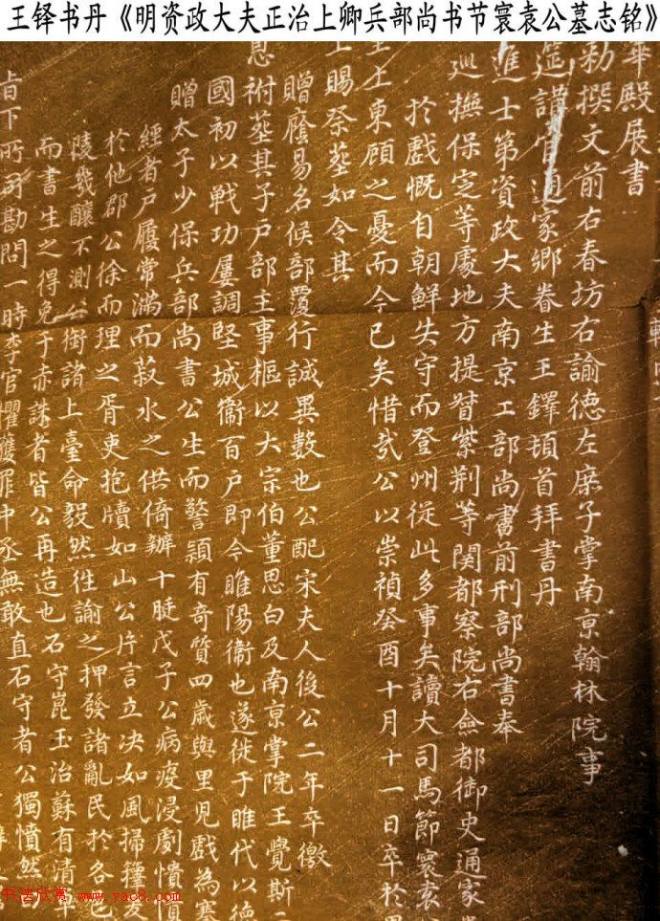 王铎书丹《明资政大夫正治上卿兵部尚书节寰袁公墓志铭》
華殿展書
勅撰文前右春坊右諭德左庶子掌南京翰林院事
筵講官通家鄉眷生王鐸頓首拜書丹
進士第資政大夫南京工部尚書前刑部尚書奉
廵撫保定等處地方提督紫荆等関都察院右僉都御史通家
於戲慨自朝鮮失守而登州從此多事矣讀大司馬節寰袁
主上東顧之憂而今已矣惜哉公以崇禎癸酉十月十一日卒於
上賜祭塟如令其
贈廕易名候部覆行誠異數也公配宋夫人後公二年卒徼
恩祔塟其子户部主事樞以大宗伯董思白及南京掌院王覺斯二
國初以戰功屢調堅城衞百户即今睢陽衞也遂徙于睢代以德
贈太子少保兵部尚書公生而警頴有奇質四歲與里児戲為塞
經者户屨常滿而菽水之供倚辦十脡戊子公病疫浸劇憒憒
於他郡公徐而理之胥吏抱牘如山公片言立决如風掃籜
陵幾釀不測公銜諸上臺命毅然往諭之押發諸亂民於各邑
而書生之得免于赤誅者皆公再造也石守崑玉治蘇有清
旨下所司勘問一時李官懼䕶罪中丞無敢直石守者公獨憤然
书法欣赏 www.yac8.com